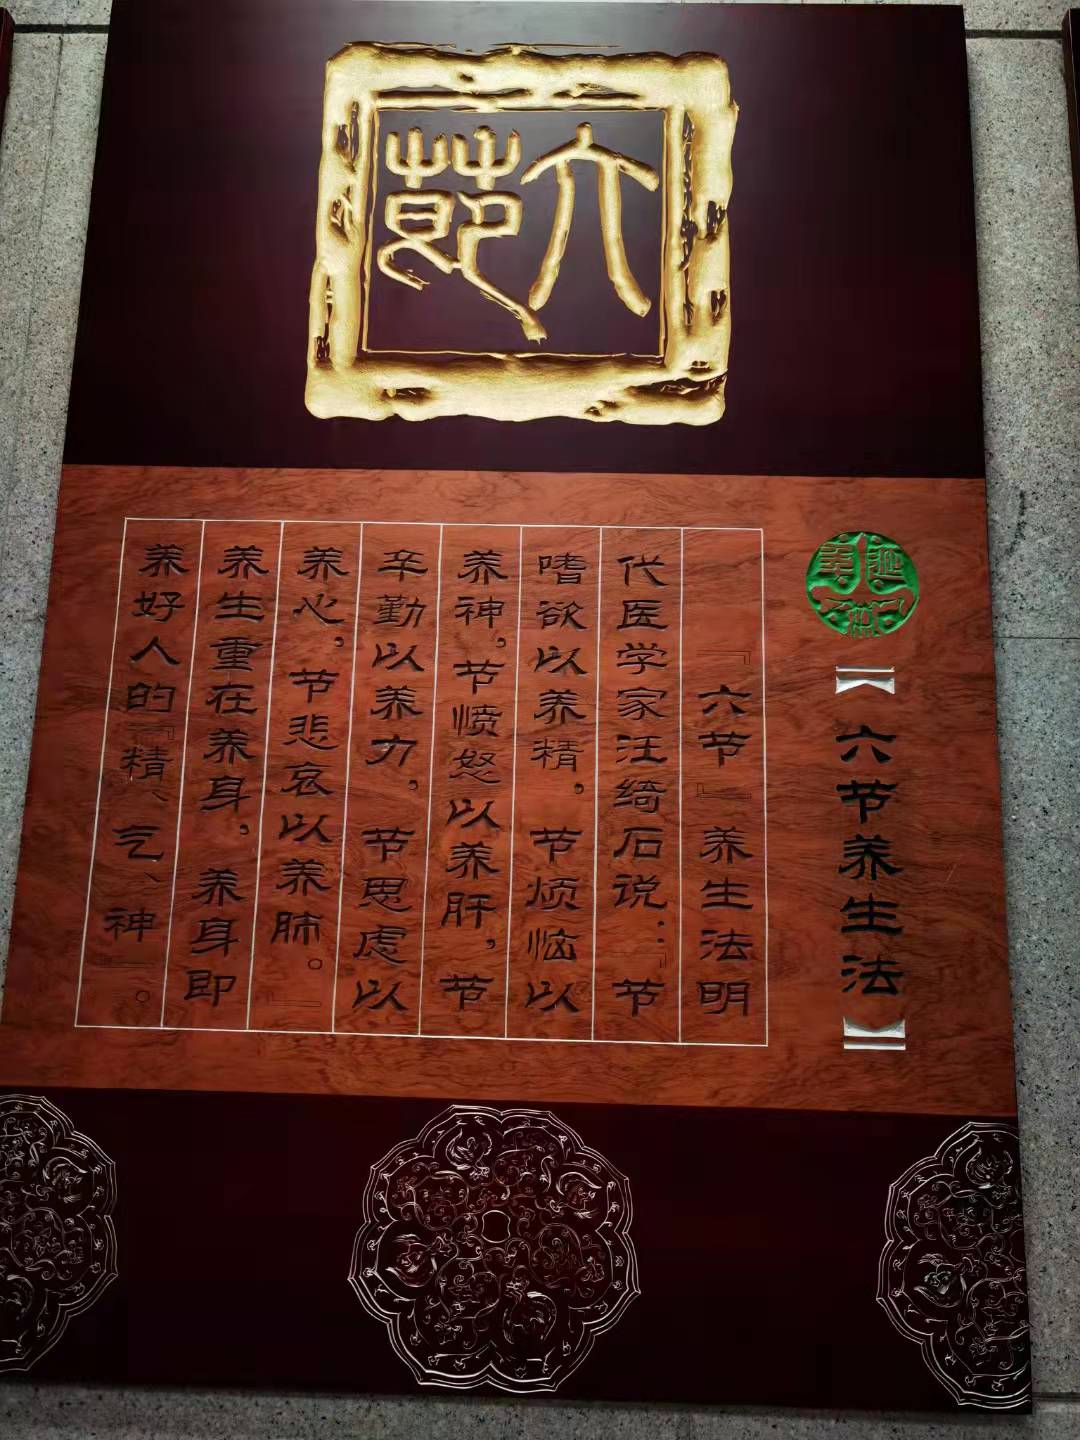 六節
【六节养生法】
『六节』养生法明
代医学家汪绮石说：『节
嗜欲以养精，节烦恼以
养神，节愤怒以养肝，节
辛勤以养力，节思虑以
养心，节悲哀以养肺。』
养生重在养身，养身即
养好人的『精、气、神』。